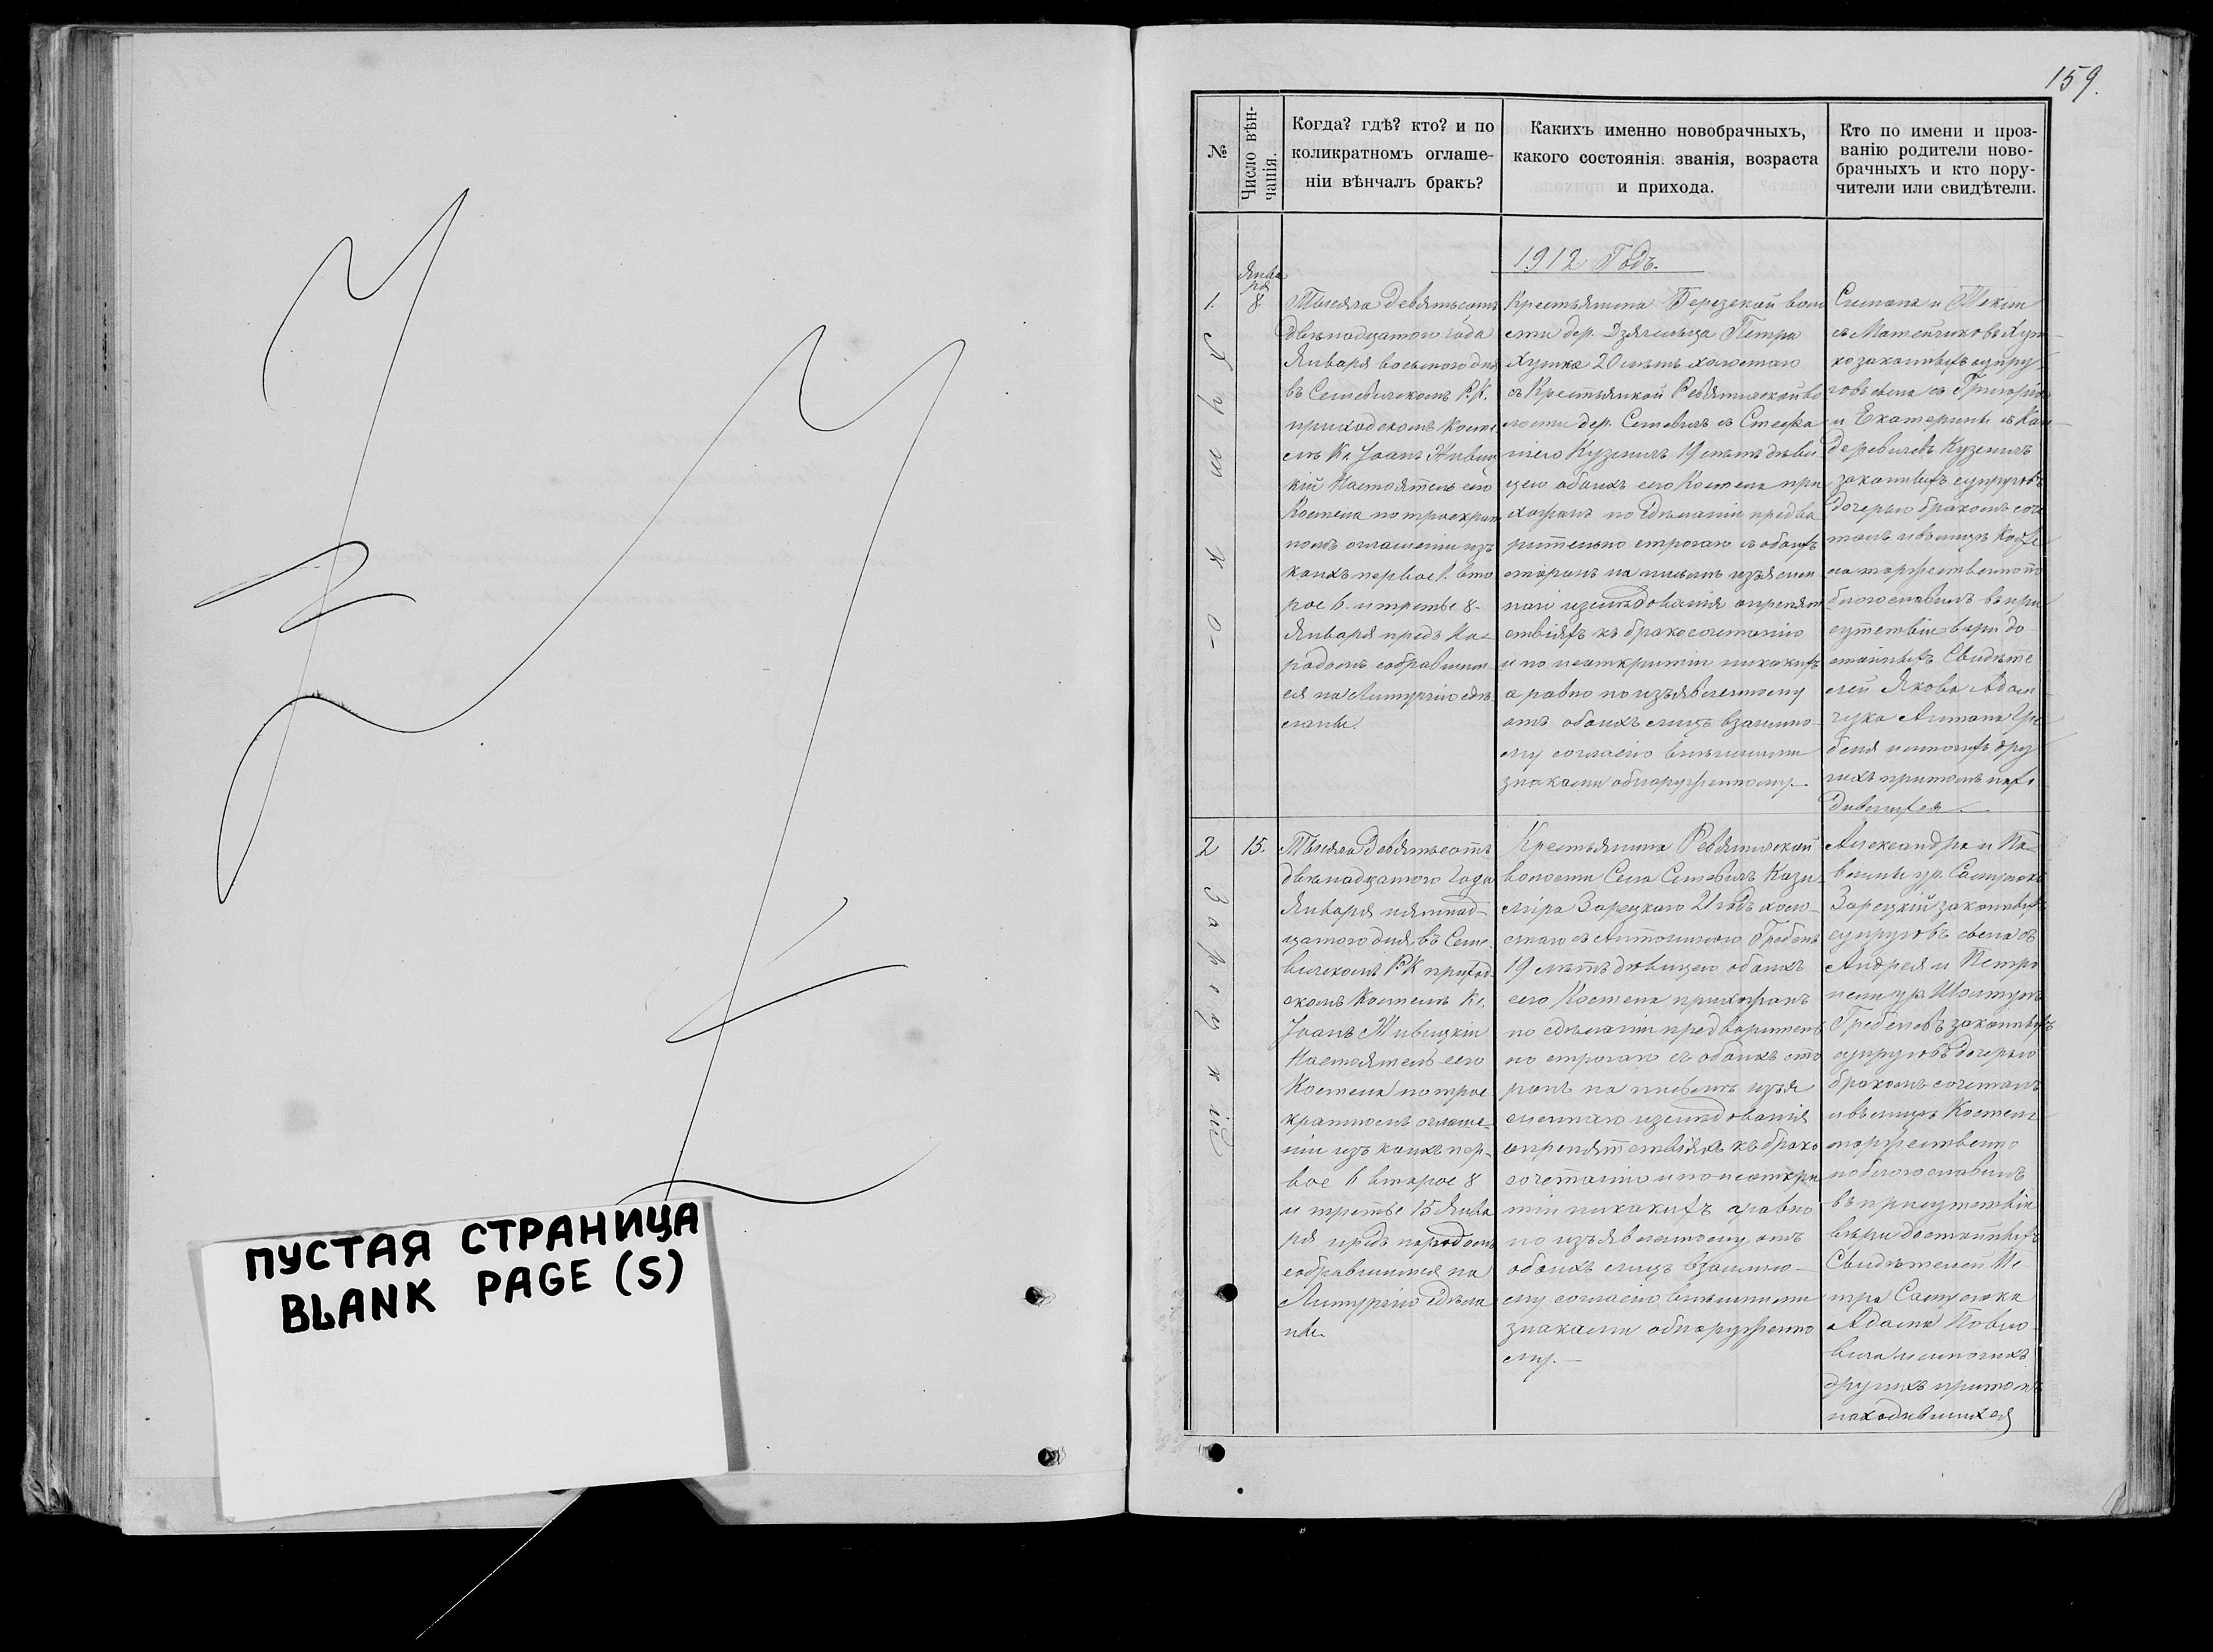 ПУСТАЯ СТРАНИЦА
BLANK PAGE (S)
159.
№
Число вѣн-
чанія.
Когда? гдѣ? кто? и по
коликратномъ оглаше-
ніи вѣнчалъ бракъ?
Какихъ именно новобрачныхъ,
какого состоянія. званія, возраста
и прихода.
Кто по имени и проз-
ванію родители ново-
брачныхъ и кто пору-
чители или свидѣтели.
1912 Годъ.
Янва
ря
1.
8.
Тысяча девятьсотъ
двѣнадцатого года
Января восьмого дня
въ Селевичскомъ Р.К.
приходскомъ Косте
лѣ Кс. Іоанъ Живиц
кій Настоятель сего
Костела по троекрат
номъ оглашеніи изъ
коихъ первое 1. вто
рое 6. и третье 8.
Января предъ На-
родомъ собравшим
ся на Литургію сдѣ
ланы.
Крестьянина Березской воло
сти дер. Петра
Хутка 20 лѣтъ холостаго
съ Крестьянкой Ревятичской во
лости дер. Селевичъ съ Стефа
ніею Куземичъ 19 лѣтъ дѣви
цею обоихъ сего Костела при
хожанъ по сдѣланіи предва
рительно строгаго съ обоихъ
сторонъ на письмѣ изъяснен
наго изслѣдованія опрепят
ствіяхъ къ бракосочетанію
и по неоткрытіи никакихъ
а равно по изъявленному
отъ обоихъ лицъ взаимно-
му согласію внѣшними
знаками обнаруженному.
и
съ Хут
ко законныхъ супру
говъ сына съ Григорія
и Екатерины съ Кон
деревичевъ Куземичъ
законныхъ супруговъ
дочерью бракомъ соче
талъ и въ лицѣ Косте
ла торжественно по
благословилъ въ при
сутствіи вѣри до
стойныхъ Свидѣте
лей Якова Адам
чука Антона Гре
беня и многихъ дру
гихъ притомъ нахо
дившихся.
Хутко-
2
15.
Тысяча девятьсотъ
двѣнадцатого Года
Января пятнад-
цатого дня въ Селе-
вичскомъ Р.К приход
скомъ Костелѣ Кс.
Іоанъ Живицкій
Настоятель сего
Костела по трое
кратномъ оглаше-
ніи изъ коихъ пер-
вое 6 второе 8
и третье 15 Янва
ря предъ народомъ
собравшимся на
Литургію сдѣла
ны.
Крестьянина Ревятичской
волости Села Селевичъ Кази-
міра Зарецкаго 21 годъ холо-
стаго съ Антониною Гребень
19 лѣтъ дѣвицею обоихъ
сего Костела прихожанъ
по сдѣланіи предварительн
но строгаго съ обоихъ сто
ронъ на письмѣ изъя
сненнаго изслѣдованія
опрепятствіяхъ къ брако
сочетанію и по неоткры
тіи никакихъ а равно
по изъявленному отъ
обоихъ лицъ взаимно-
му согласію внѣшними
знаками обнаруженно
му.-
Александра и Па-
влины ур.
Зарецкій законныхъ
супруговъ сына съ
Андрея и Петро
нели ур.
Гребеневъ законныхъ
супруговъ дочерью
бракомъ сочеталъ
и въ лицѣ Костела
торжественно
поблагословилъ
въ присутствіи
вѣри достойныхъ
Свидѣтелей Пе-
тра Самусюка
Адама Повло
вича и многихъ
другихъ притомъ
находившихся
Зарецкій